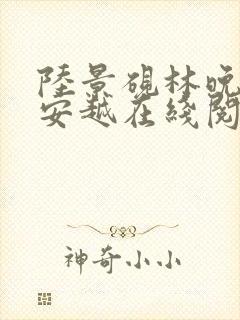 陸景硯林晚
安越在綫閱
神奇小小